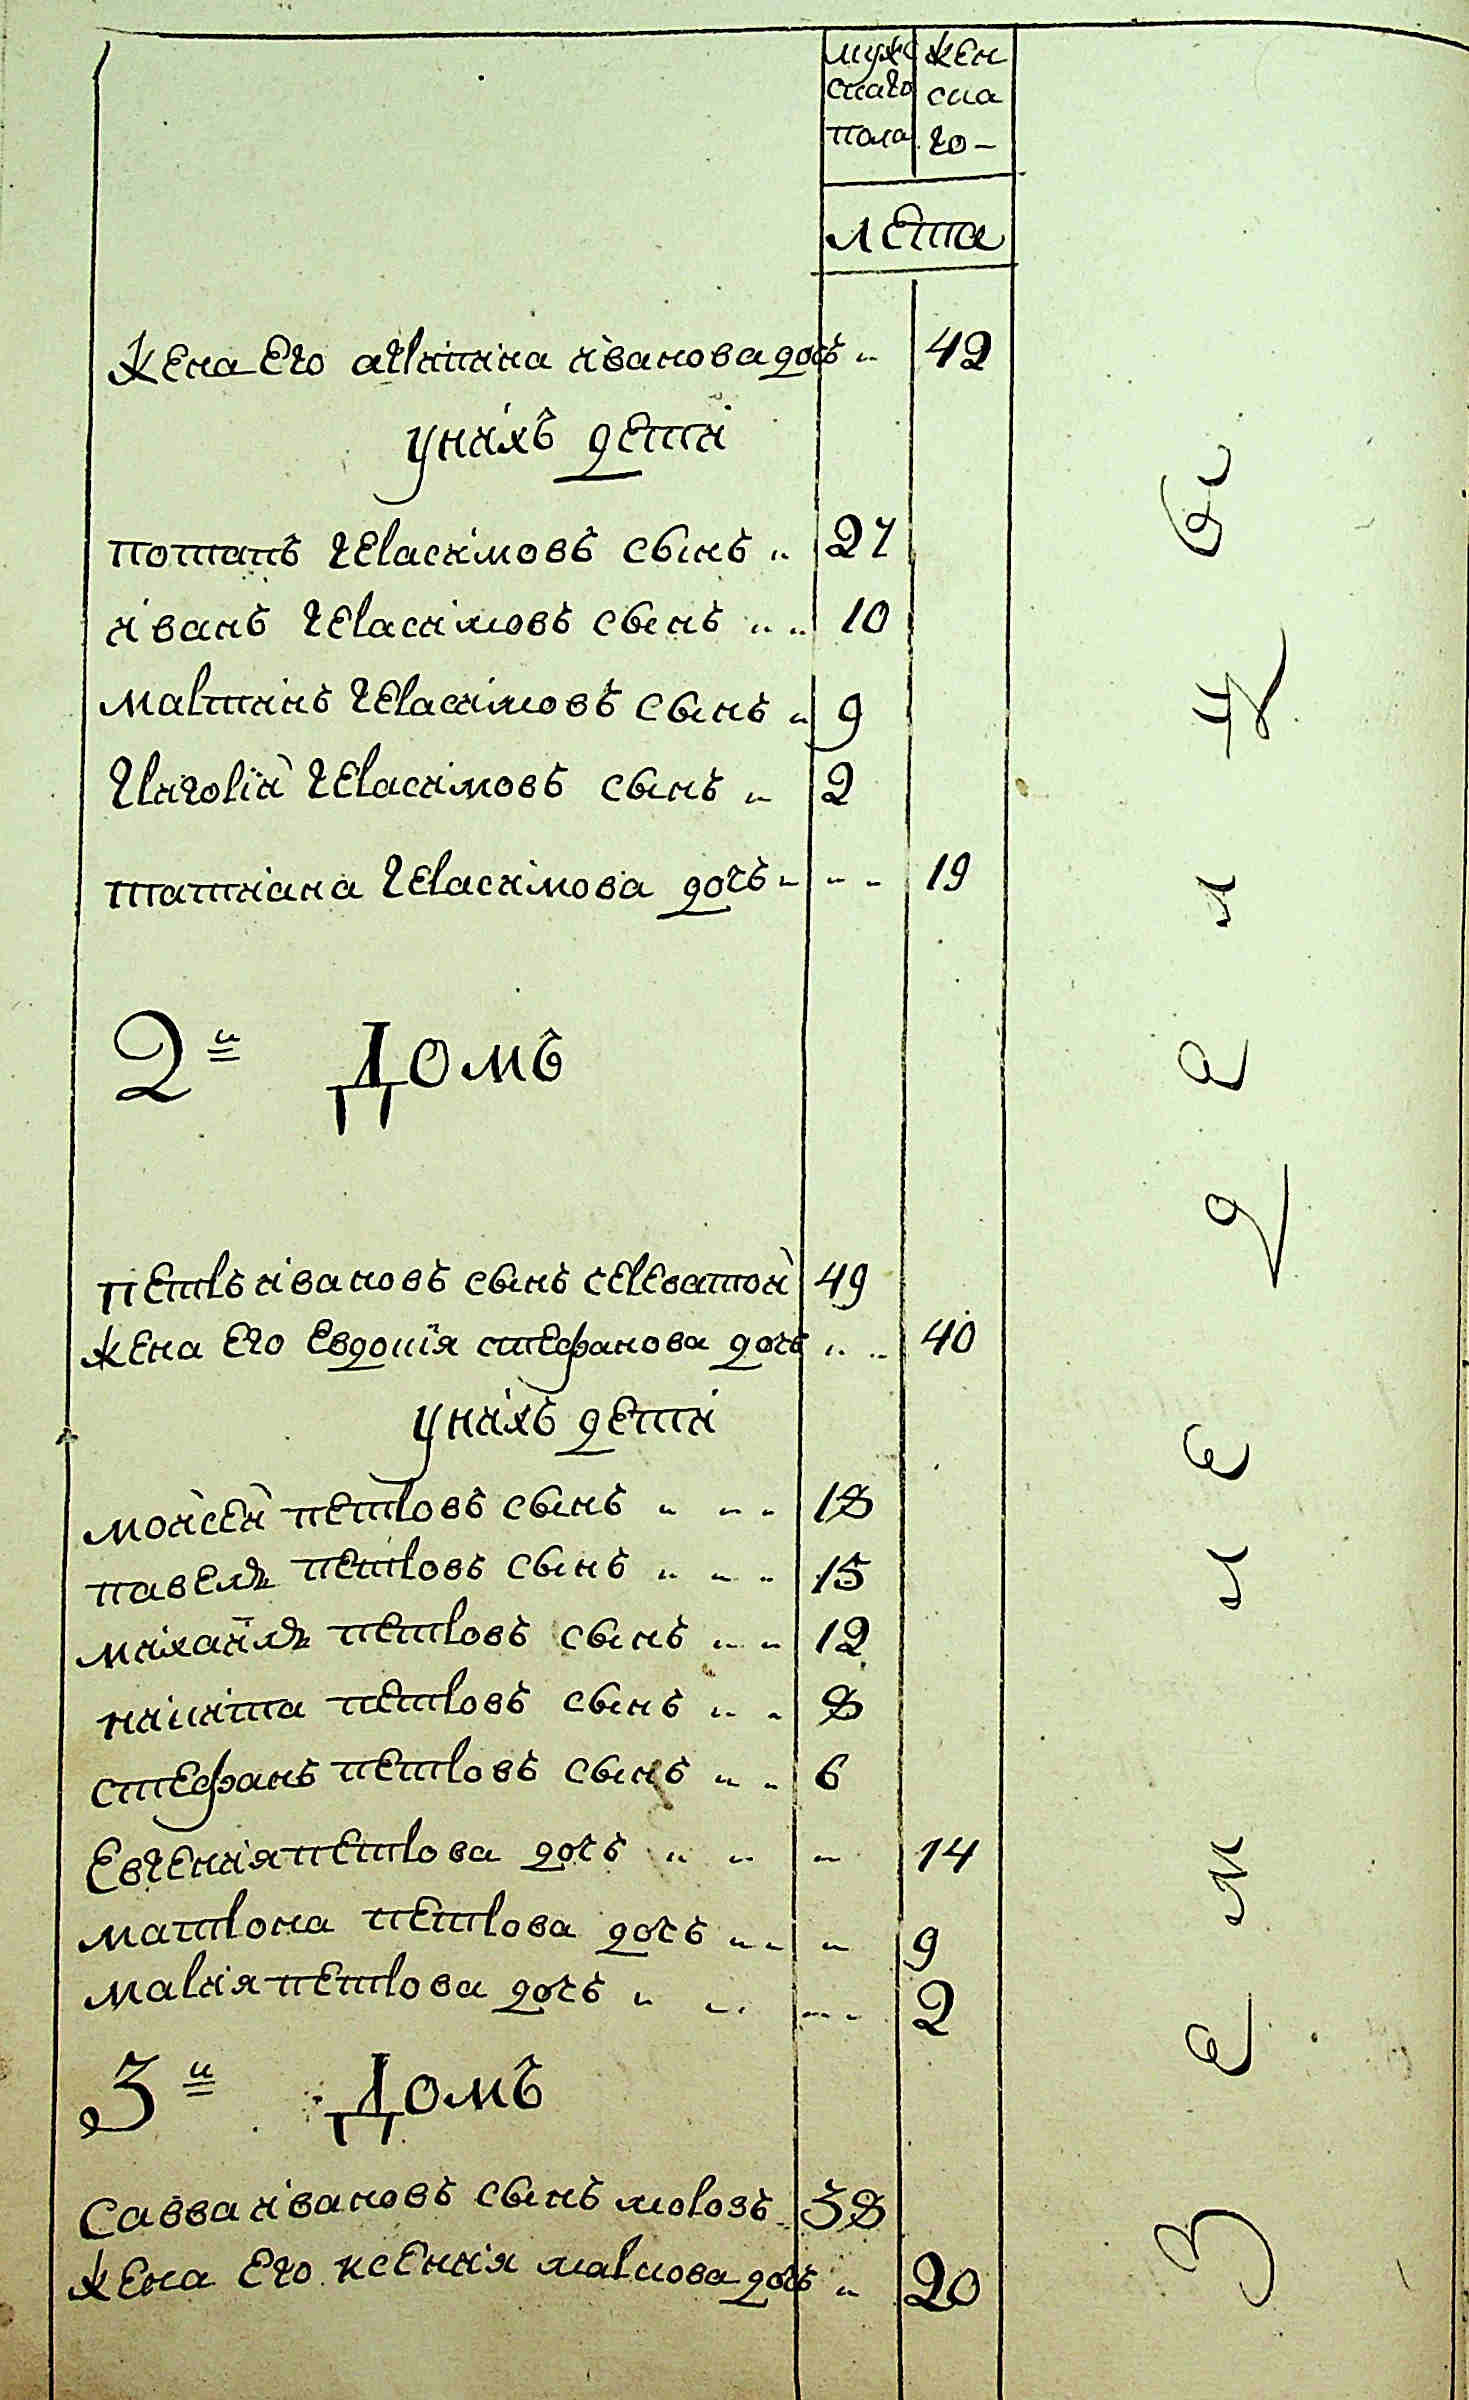 мужс
скаго
пола
жен
ска
го-
лета
жена его агрипина иванова дочь 42
у них детй
потапъ герасимовъ сынъ 27
иванъ герасимовъ сынъ 10
мартинъ герасимовъ сынъ 9
григорiй герасимовъ сынъ 2
татиана герасимова дочь 19
2й домъ
петръ ивановъ сынъ череватой 49
жена его евдокiя стефанова дочь 40
унихъ дети
моисей петровъ сынъ 18
павелъ петровъ сынъ 15
михаилъ петровъ сынъ 12
никита петровъ сынъ 8
стефанъ петровъ сынъ 6
евгения петрова дочь 14
матрона петрова дочь 9
мария петрова дочь 2
3й домъ
савва ивановъ сынъ морозъ 38
жена его ксения маркова дочь 20
земледелцы